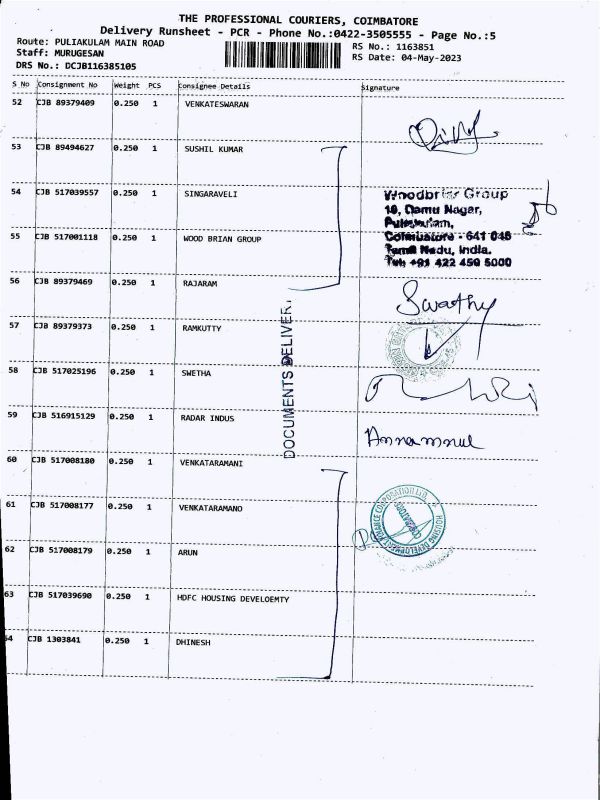 THE PROFESSIONAL COURIERS, COIMBATORE
Delivery Runsheet - PCR - Phone No.:0422-3505555 - Page No.:5
Route: PULIAKULAM MAIN ROAD
RS No.: 1163851
Staff: MURUGESAN
RS Date: 04-May-2023
DRS No.: DCJB116385105
S No Consignment No Weight PCS Consignee Details Signature
52 CJB 89379409 0.250 1 VENKATESWARAN
53 CJB 89494627 0.250 1 SUSHIL KUMAR
54 CJB 517039557 0.250 1 SINGARAVELI
Woodbriar Group
18, Damu Nagar,
Puliakulam,
55 CJB 517001118 0.250 1 WOOD BRIAN GROUP
Coimbatore - 641 045
Tamil Nadu, India.
Tel: +91 422 450 5000
56 CJB 89379469 0.250 1 RAJARAM
Swathy
57 CJB 89379373 0.250 1 RAMKUTTY
DOCUMENTS DELIVER
58 CJB 517025196 0.250 1 SWETHA
59 CJB 516915129 0.250 1 RADAR INDUS
60 CJB 517008180 0.250 1 VENKATARAMANI
61 CJB 517008177 0.250 1 VENKATARAMANO
HOUSING DEVELOPMENT FINANCE CORPORATION LTD.
COIMBATORE
62 CJB 517008179 0.250 1 ARUN
63 CJB 517039690 0.250 1 HDFC HOUSING DEVELOEMTY
64 CJB 1303841 0.250 1 DHINESH